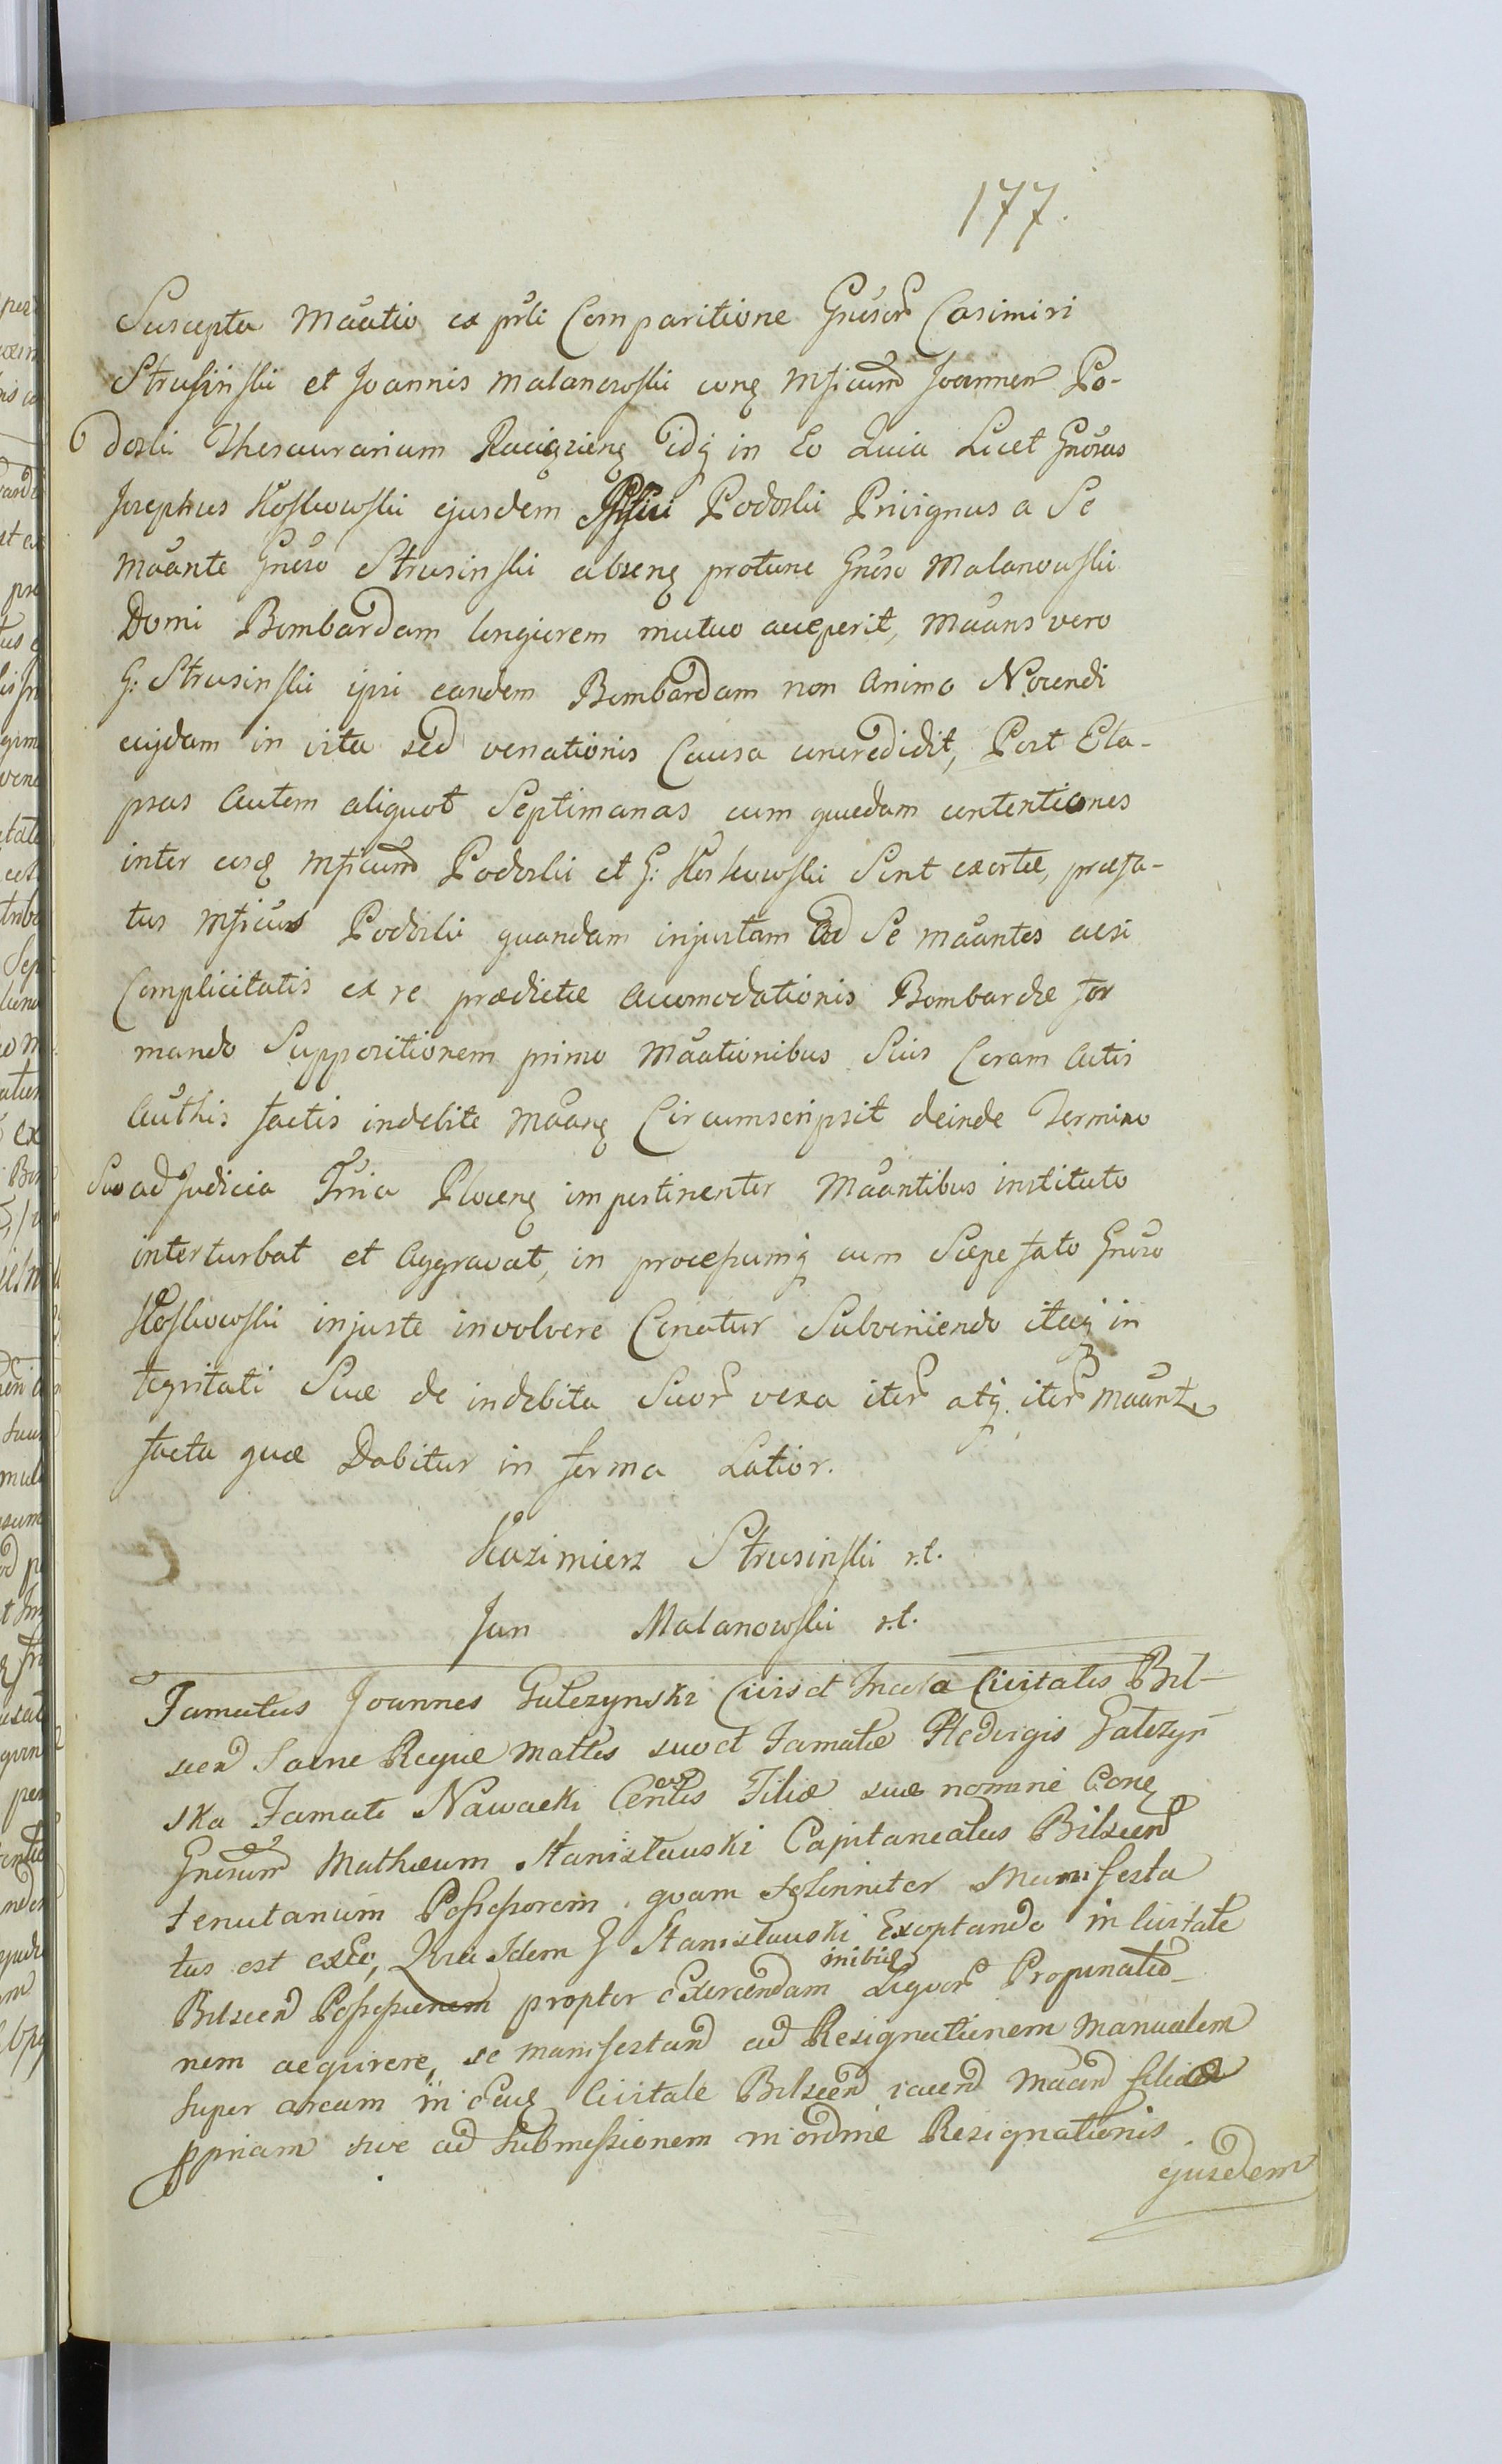 177.
Suscepta Mãatio ex pñti Comparitione Gnũsor Casimiri
Strusinski et Joannis Malanowski cong Mficum Joannem Po-
doski Thesaurarium Raciązieng idq in Eo Quia Licet Gnõsus
Josephus Koskowski ejusdem Podoski Privignus a Se
Mãante Gnũso Strusinski abseng protunc Gnũso Malanowski
Domi Bombardam longiorem mutuo acceperit, Mãans vero
G: Strusinski ipsi eandem Bombardam non animo Nocendi
cujdam in vita sed venationis Causa concredidit, Post Ela-
psas autem aliquot Septimanas cum quædam contentiones
inter eosq Mficum Podoski et G: Koskowski Sint exortæ, præfa-
tus Mficus Podoski quandam injustam ad Se mãantes acsi
Complicitatis ex re prædictæ accomodationis Bombardæ for
mando Suppositionem primo Mãationibus Suis Coram actis
Authis factis indebite Mãang Circumscripsit deinde Termino
Suo ad Judicia Tñia Ploceng impertinenter Mãantibus instituto
interturbat et Aggravat, in processumq cum Sæpe fato Gnũso
Koskowski injuste involvere Conatur Subveniendo itaq in
tegritati Suæ de indebita Suor vexa iter atq iter Mãant
facta quæ Dabitur in forma Latior.
Kazimierz Strusinski r.t.
Jan Malanowski r.t.
Famatus Joannes Galczynski Civis et Incola Civitatis Bil-
scen Sacræ Regiæ Mattis suo et Famatæ Hedvigis Galczyn
ska Famati Nawacki Filiæ suæ nomine Cong
Gnosum Mathæum Stanisławski Capitaneatus Bilscen
tenutarium Possessorem quam solenniter Manifesta
tus est ex Eo, Quia Idem G Stanisławski Exoptando in Civitate
Bilscen Possessionem propter Exercendam inibiq Liquor Propinatio-
nem acquirere, se manifestand ad Resignationem Manualem
super aream in eadq Civitate Bilscen jacend Mãand filiæ
ppriam sive ad submissionem in ordine Resignationis
ejusdem